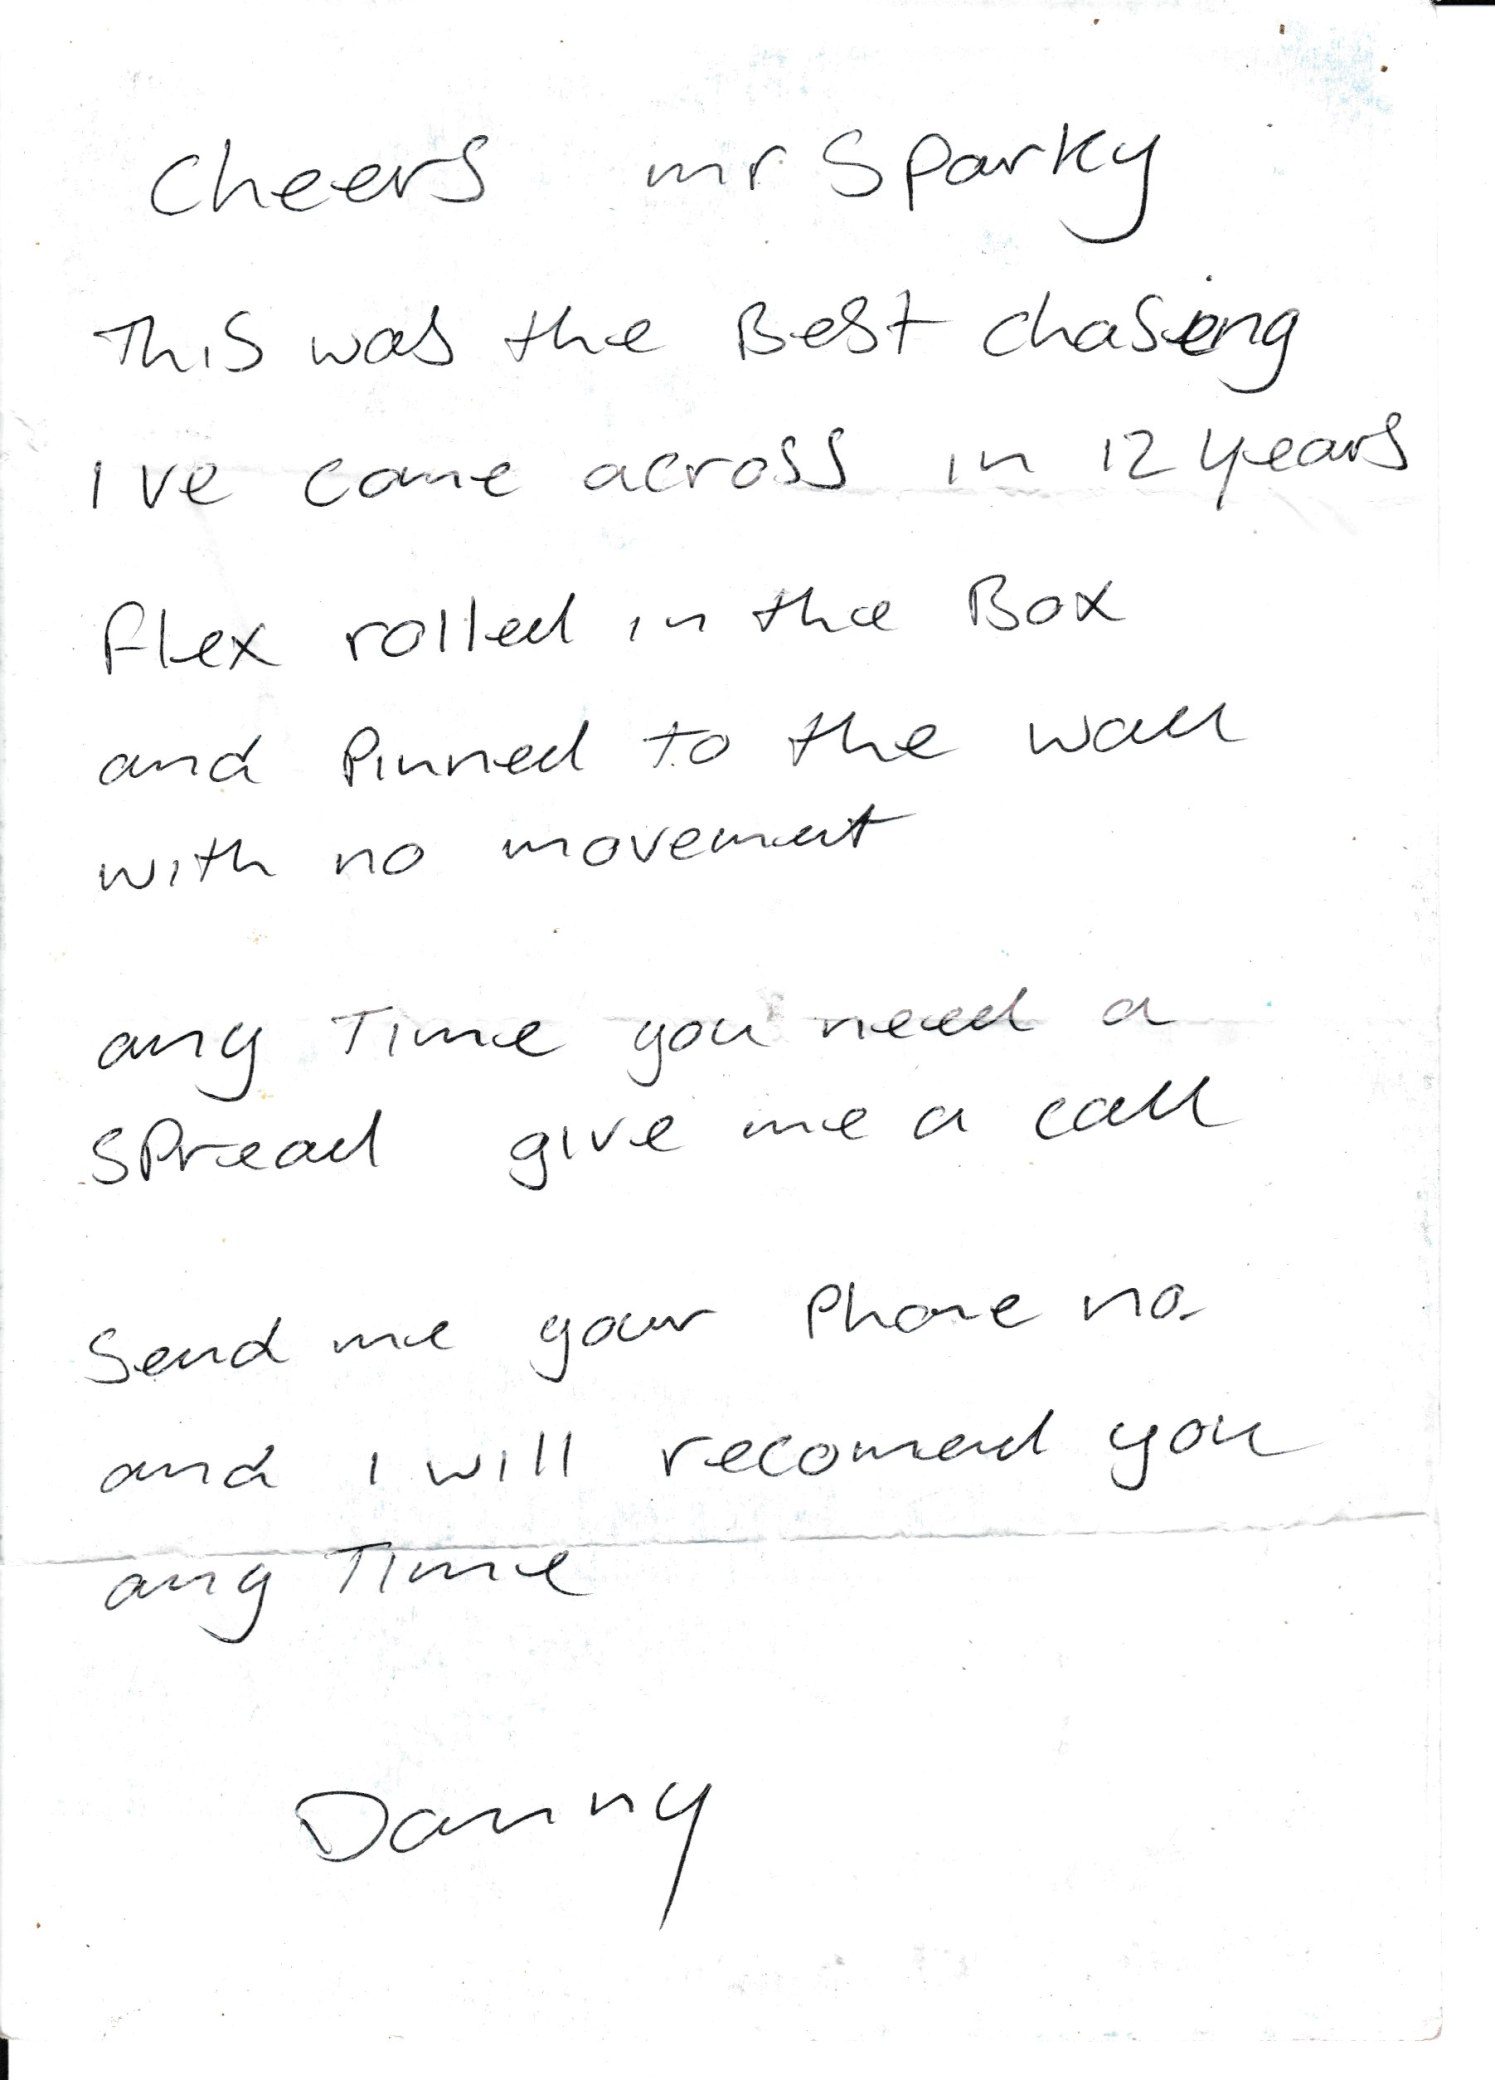 Cheers mr Sparky
This was the Best chasing
I've come across in 12 years
flex rolled in the Box
and Pinned to the wall
with no movement
any Time you need a
spread give me a call
Send me your Phone no.
and I will recomend you
any Time
Danny